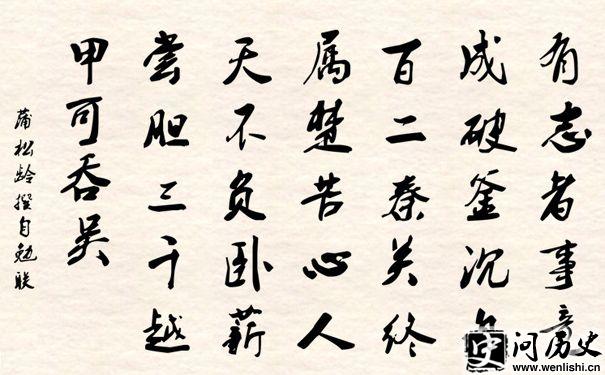 有志者事竟
成破釜沉舟
百二秦关终
属楚苦心人
天不负卧薪
尝胆三千越
甲可吞吴
蒲松龄撰自勉联
史 问历史
www.wenlishi.cn